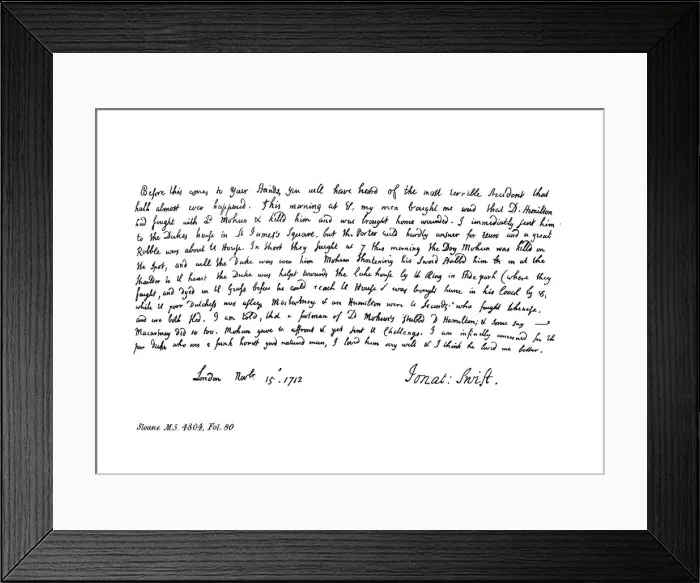 Before this comes to Your Hands, you will have heard of the most terrible Accident that
hath almost ever happened. This morning at 8, my man brought me word that D. Hamilton
had fought with Ld Mohun & killd him and was brought home wounded. I immediatly sent him
to the Dukes house in St James's Square, but the Porter could hardly answer for tears and a great
Rabble was about the House. In short they fought at 7 this morning the Dog Mohun was killd on
the Spot, and wile the Duke was over him Mohun shortening his Sword stabbd him in at the
Shoulder to the heart the Duke was helpt towards the Cake house by the Ring in Hide park (where they
fought, and dyed on the Grass before he could reach the House & was brought home in his Coach by 8,
while the poor Dutchess was asleep. Mackartney & one Hamilton were the Seconds who fought likewise,
and are both fled. I am told, that a footman of Ld Mohun's stabbd D Hamilton; & some say
Macartney did so too. Mohun gave the affront & yet sent the Challenge. I am infinitly concerned for the
poor Duke who was a frank honest good natured man, I loved him very well & I think he loved me better.
London Novbr 15th. 1712
Jonat: Swift.
Sloane M.S. 4804, Fol. 80